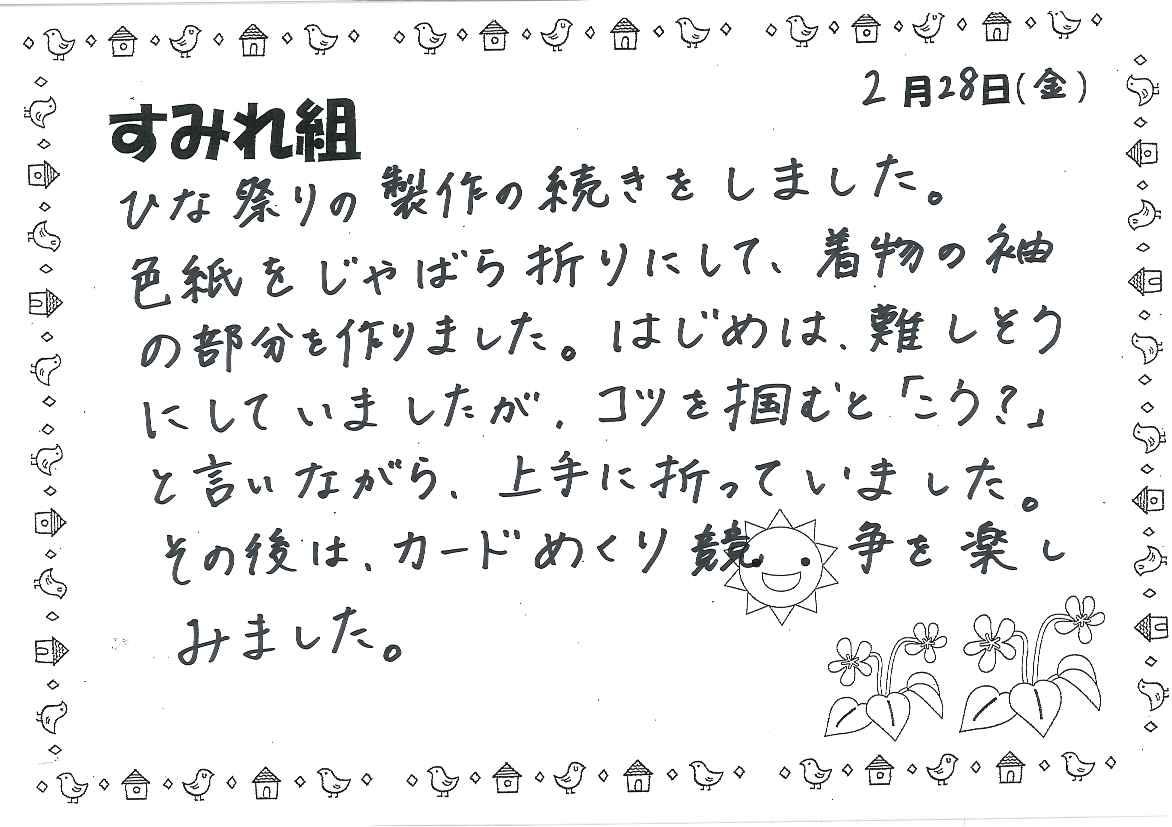 2月28日(金)
すみれ組
ひな祭りの製作の続きをしました。
色紙をじゃばら折りにして、着物の袖
の部分を作りました。はじめは、難しそう
にしていましたが、コツを掴むと「こう?」
と言いながら、上手に折っていました。
その後は、カードめくり競争を楽し
みました。